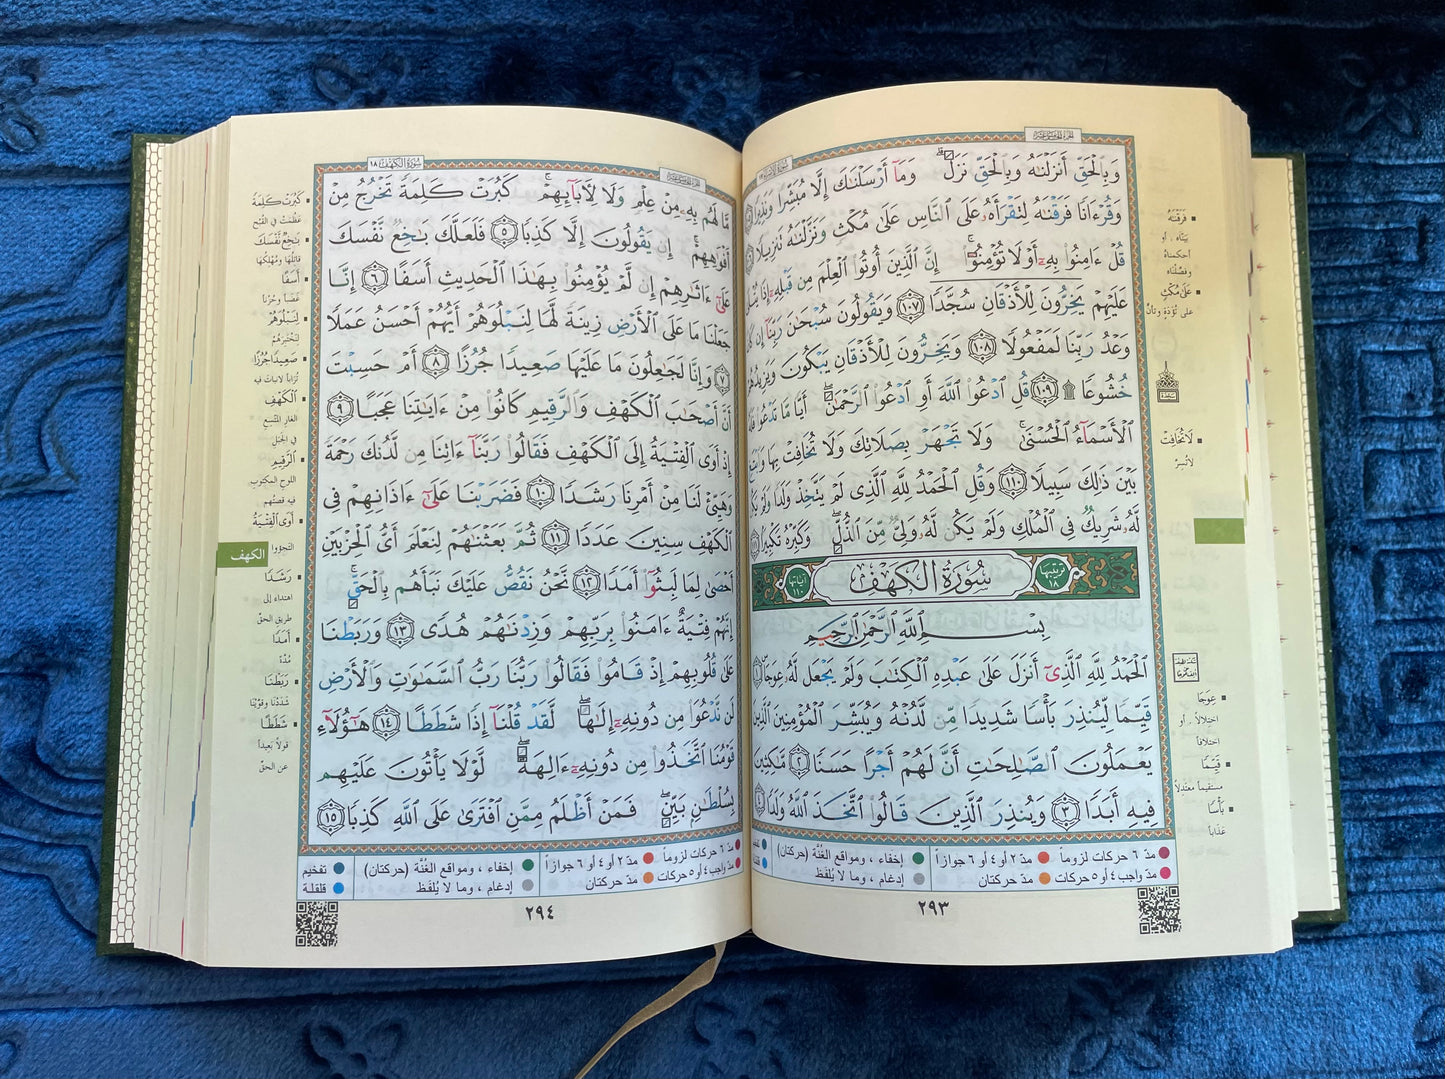 الجزء الخامس عشر
وَبِٱلْحَقِّ أَنزَلْنَٰهُ وَبِٱلْحَقِّ نَزَلَ ۗ وَمَآ أَرْسَلْنَٰكَ إِلَّا مُبَشِّرًا وَنَذِيرًا
وَقُرْءَانًا فَرَقْنَٰهُ لِتَقْرَأَهُۥ عَلَى ٱلنَّاسِ عَلَىٰ مُكْثٍ وَنَزَّلْنَٰهُ تَنزِيلًا
قُلْ ءَامِنُوا۟ بِهِۦٓ أَوْ لَا تُؤْمِنُوٓا۟ ۚ إِنَّ ٱلَّذِينَ أُوتُوا۟ ٱلْعِلْمَ مِن قَبْلِهِۦٓ إِذَا
عَلَيْهِمْ يَخِرُّونَ لِلْأَذْقَانِ سُجَّدًا ١٠٧ وَيَقُولُونَ سُبْحَٰنَ رَبِّنَآ إِن
وَعْدُ رَبِّنَا لَمَفْعُولًا ١٠٨ وَيَخِرُّونَ لِلْأَذْقَانِ يَبْكُونَ وَيَزِيدُهُمْ
خُشُوعًا ۩ ١٠٩ قُلِ ٱدْعُوا۟ ٱللَّهَ أَوِ ٱدْعُوا۟ ٱلرَّحْمَٰنَ ۖ أَيًّا مَّا تَدْعُوا۟
ٱلْأَسْمَآءُ ٱلْحُسْنَىٰ ۚ وَلَا تَجْهَرْ بِصَلَاتِكَ وَلَا تُخَافِتْ بِهَا
بَيْنَ ذَٰلِكَ سَبِيلًا ١١٠ وَقُلِ ٱلْحَمْدُ لِلَّهِ ٱلَّذِى لَمْ يَتَّخِذْ وَلَدًا وَلَمْ
لَّهُۥ شَرِيكٌ فِى ٱلْمُلْكِ وَلَمْ يَكُن لَّهُۥ وَلِىٌّ مِّنَ ٱلذُّلِّ ۖ وَكَبِّرْهُ تَكْبِيرًۢا
ترتيبها ١٨ سُورَةُ الْكَهْفِ آياتها ١١٠
بِسْمِ ٱللَّهِ ٱلرَّحْمَٰنِ ٱلرَّحِيمِ
ٱلْحَمْدُ لِلَّهِ ٱلَّذِىٓ أَنزَلَ عَلَىٰ عَبْدِهِ ٱلْكِتَٰبَ وَلَمْ يَجْعَل لَّهُۥ عِوَجَا ١
قَيِّمًا لِّيُنذِرَ بَأْسًا شَدِيدًا مِّن لَّدُنْهُ وَيُبَشِّرَ ٱلْمُؤْمِنِينَ ٱلَّذِينَ
يَعْمَلُونَ ٱلصَّٰلِحَٰتِ أَنَّ لَهُمْ أَجْرًا حَسَنًا ٢ مَّٰكِثِينَ
فِيهِ أَبَدًا ٣ وَيُنذِرَ ٱلَّذِينَ قَالُوا۟ ٱتَّخَذَ ٱللَّهُ وَلَدًا ٤
فَرَقْنَٰهُ
بيّنّاه ، أو
أحكمناه
وفصّلناه
عَلَىٰ مُكْثٍ
على تُؤَدَةٍ وتأنّ
سجدة
لَا تُخَافِتْ
لا تُسِرّ
عِوَجَا
اختلالاً ، أو
اختلافاً
قَيِّمًا
مستقيماً معتدلاً
بَأْسًا
عذاباً
مدّ ٦ حركات لزوماً مدّ ٢ أو ٤ أو ٦ جوازاً إخفاء ، ومواقع الغُنّة (حركتان)
مدّ واجب ٤ أو ٥ حركات مدّ حركتان إدغام ، وما لا يُلفَظ
٢٩٣
سُورَةُ الْكَهْفِ ١٨
مَّا لَهُم بِهِۦ مِنْ عِلْمٍ وَلَا لِـَٔابَآئِهِمْ ۚ كَبُرَتْ كَلِمَةً تَخْرُجُ مِنْ
أَفْوَٰهِهِمْ ۚ إِن يَقُولُونَ إِلَّا كَذِبًا ٥ فَلَعَلَّكَ بَٰخِعٌ نَّفْسَكَ
عَلَىٰٓ ءَاثَٰرِهِمْ إِن لَّمْ يُؤْمِنُوا۟ بِهَٰذَا ٱلْحَدِيثِ أَسَفًا ٦ إِنَّا
جَعَلْنَا مَا عَلَى ٱلْأَرْضِ زِينَةً لَّهَا لِنَبْلُوَهُمْ أَيُّهُمْ أَحْسَنُ عَمَلًا
٧ وَإِنَّا لَجَٰعِلُونَ مَا عَلَيْهَا صَعِيدًا جُرُزًا ٨ أَمْ حَسِبْتَ
أَنَّ أَصْحَٰبَ ٱلْكَهْفِ وَٱلرَّقِيمِ كَانُوا۟ مِنْ ءَايَٰتِنَا عَجَبًا ٩
إِذْ أَوَى ٱلْفِتْيَةُ إِلَى ٱلْكَهْفِ فَقَالُوا۟ رَبَّنَآ ءَاتِنَا مِن لَّدُنكَ رَحْمَةً
وَهَيِّئْ لَنَا مِنْ أَمْرِنَا رَشَدًا ١٠ فَضَرَبْنَا عَلَىٰٓ ءَاذَانِهِمْ فِى
ٱلْكَهْفِ سِنِينَ عَدَدًا ١١ ثُمَّ بَعَثْنَٰهُمْ لِنَعْلَمَ أَىُّ ٱلْحِزْبَيْنِ
أَحْصَىٰ لِمَا لَبِثُوٓا۟ أَمَدًا ١٢ نَّحْنُ نَقُصُّ عَلَيْكَ نَبَأَهُم بِٱلْحَقِّ ۚ
إِنَّهُمْ فِتْيَةٌ ءَامَنُوا۟ بِرَبِّهِمْ وَزِدْنَٰهُمْ هُدًى ١٣ وَرَبَطْنَا
عَلَىٰ قُلُوبِهِمْ إِذْ قَامُوا۟ فَقَالُوا۟ رَبُّنَا رَبُّ ٱلسَّمَٰوَٰتِ وَٱلْأَرْضِ
لَن نَّدْعُوَا۟ مِن دُونِهِۦٓ إِلَٰهًا ۖ لَّقَدْ قُلْنَآ إِذًا شَطَطًا ١٤ هَٰٓؤُلَآءِ
قَوْمُنَا ٱتَّخَذُوا۟ مِن دُونِهِۦٓ ءَالِهَةً ۖ لَّوْلَا يَأْتُونَ عَلَيْهِم
بِسُلْطَٰنٍۭ بَيِّنٍ ۖ فَمَنْ أَظْلَمُ مِمَّنِ ٱفْتَرَىٰ عَلَى ٱللَّهِ كَذِبًا ١٥
كَبُرَتْ كَلِمَةً
عَظُمَتْ في القُبْح
بَٰخِعٌ نَّفْسَكَ
قاتلُها ومُهلِكها
أَسَفًا
غضباً وحُزْناً
لِنَبْلُوَهُمْ
لنَختبرَهُمْ
صَعِيدًا جُرُزًا
تُراباً لا نبات فيه
ٱلْكَهْفِ
الغار المُتَّسِع
في الجَبَل
ٱلرَّقِيمِ
اللوح المكتوب
فيه قصتُهم
أَوَى ٱلْفِتْيَةُ
التجؤوا
الكهف
رَشَدًا
اهتداء إلى
طريق الحقّ
أَمَدًا
مُدّة
رَبَطْنَا
شدَدْنا وقوّيْنا
شَطَطًا
قولاً بَعيداً
عن الحقّ
مدّ ٦ حركات لزوماً مدّ ٢ أو ٤ أو ٦ جوازاً إخفاء ، ومواقع الغُنّة (حركتان) تفخيم
مدّ واجب ٤ أو ٥ حركات مدّ حركتان إدغام ، وما لا يُلفَظ قلقلة
٢٩٤